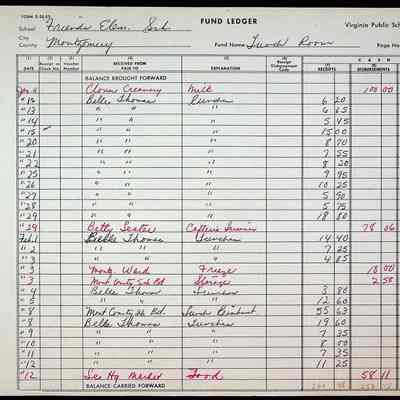 FORM
School Friends Elem. Sch. FUND LEDGER Virginia Public Sc
City
County Montgomery Fund Name Lunch Room Page N
(1) (2) (3) (4) (5) (6) (7) (8)
DATE Receipt or Check No. Voucher Number RECEIVED FROM PAID TO EXPLANATION Receipt Disbursement Code CASH RECEIPTS DISBURSEMENTS
BALANCE BROUGHT FORWARD
11 Clover Creamery Milk 100 00
" 12 Belle Thomas Lunches 6 20
" 13 " " " 6 65
" 14 " " " 5 45
" 15 " " " 15 00
" 20 " " " 8 70
" 21 " " " 7 55
" 22 " " " 8 20
" 25 " " " 9 95
" 26 " " " 10 25
" 27 " " " 5 90
" 28 " " " 5 75
" 29 " " " 18 80
" 29 Betty 78 06
Feb. 1 Belle Thomas Lunches 14 40
" 2 " " " 7 25
" 3 " " " 4 85
" 3 Montg. Ward 18 00
" 3 Mont County Sch Bd Storage 2 50
" 4 Belle Thomas Lunches 3 80
" 5 " " " 12 60
" 8 Mont County Sch. Bd. Lunch 55 63
" 8 Belle Thomas Lunches 19 60
" 9 " " " 7 35
" 10 " " " 8 00
" 11 " " " 7 35
" 12 " " " 11 25
" 12 Market Food 58 11
BALANCE CARRIED FORWARD